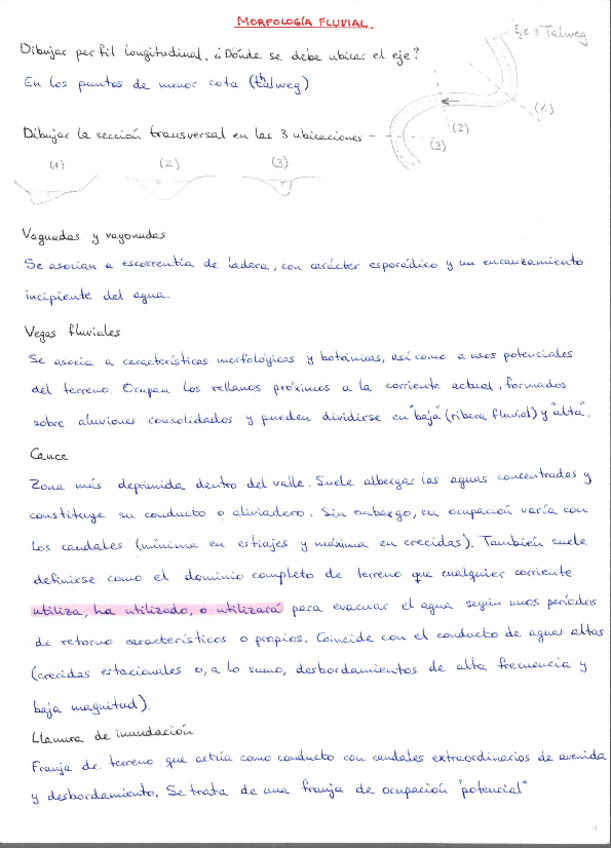 MORFOLOGÍA FLUVIAL
Dibujar perfil longitudinal. ¿Dónde se debe ubicar el eje?
Eje = Talweg
En los puntos de menor cota (talweg)
(1)
(2)
(3)
Dibujar la sección transversal en las 3 ubicaciones
(1) (2) (3)
Vaguadas y vagonadas
Se asocian a escorrentía de ladera, con carácter esporádico y un encauzamiento
incipiente del agua.
Vegas fluviales
Se asocia a características morfológicas y botánicas, así como a usos potenciales
del terreno. Ocupan los rellanos próximos a la corriente actual, formados
sobre aluviones consolidados y pueden dividirse en "baja" (ribera fluvial) y "alta".
Cauce
Zona más deprimida dentro del valle. Suele albergar las aguas concentradas y
constituye su conducto o aliviadero. Sin embargo, su ocupación varía con
los caudales (mínima en estiajes y máxima en crecidas). También suele
definirse como el dominio completo de terreno que cualquier corriente
utiliza, ha utilizado, o utilizará para evacuar el agua según unos períodos
de retorno característicos o propios. Coincide con el conducto de aguas altas
(crecidas estacionales o, a lo sumo, desbordamientos de alta frecuencia y
baja magnitud).
Llanura de inundación
Franja de terreno que actúa como conducto con caudales extraordinarios de avenida
y desbordamiento. Se trata de una franja de ocupación "potencial"
1